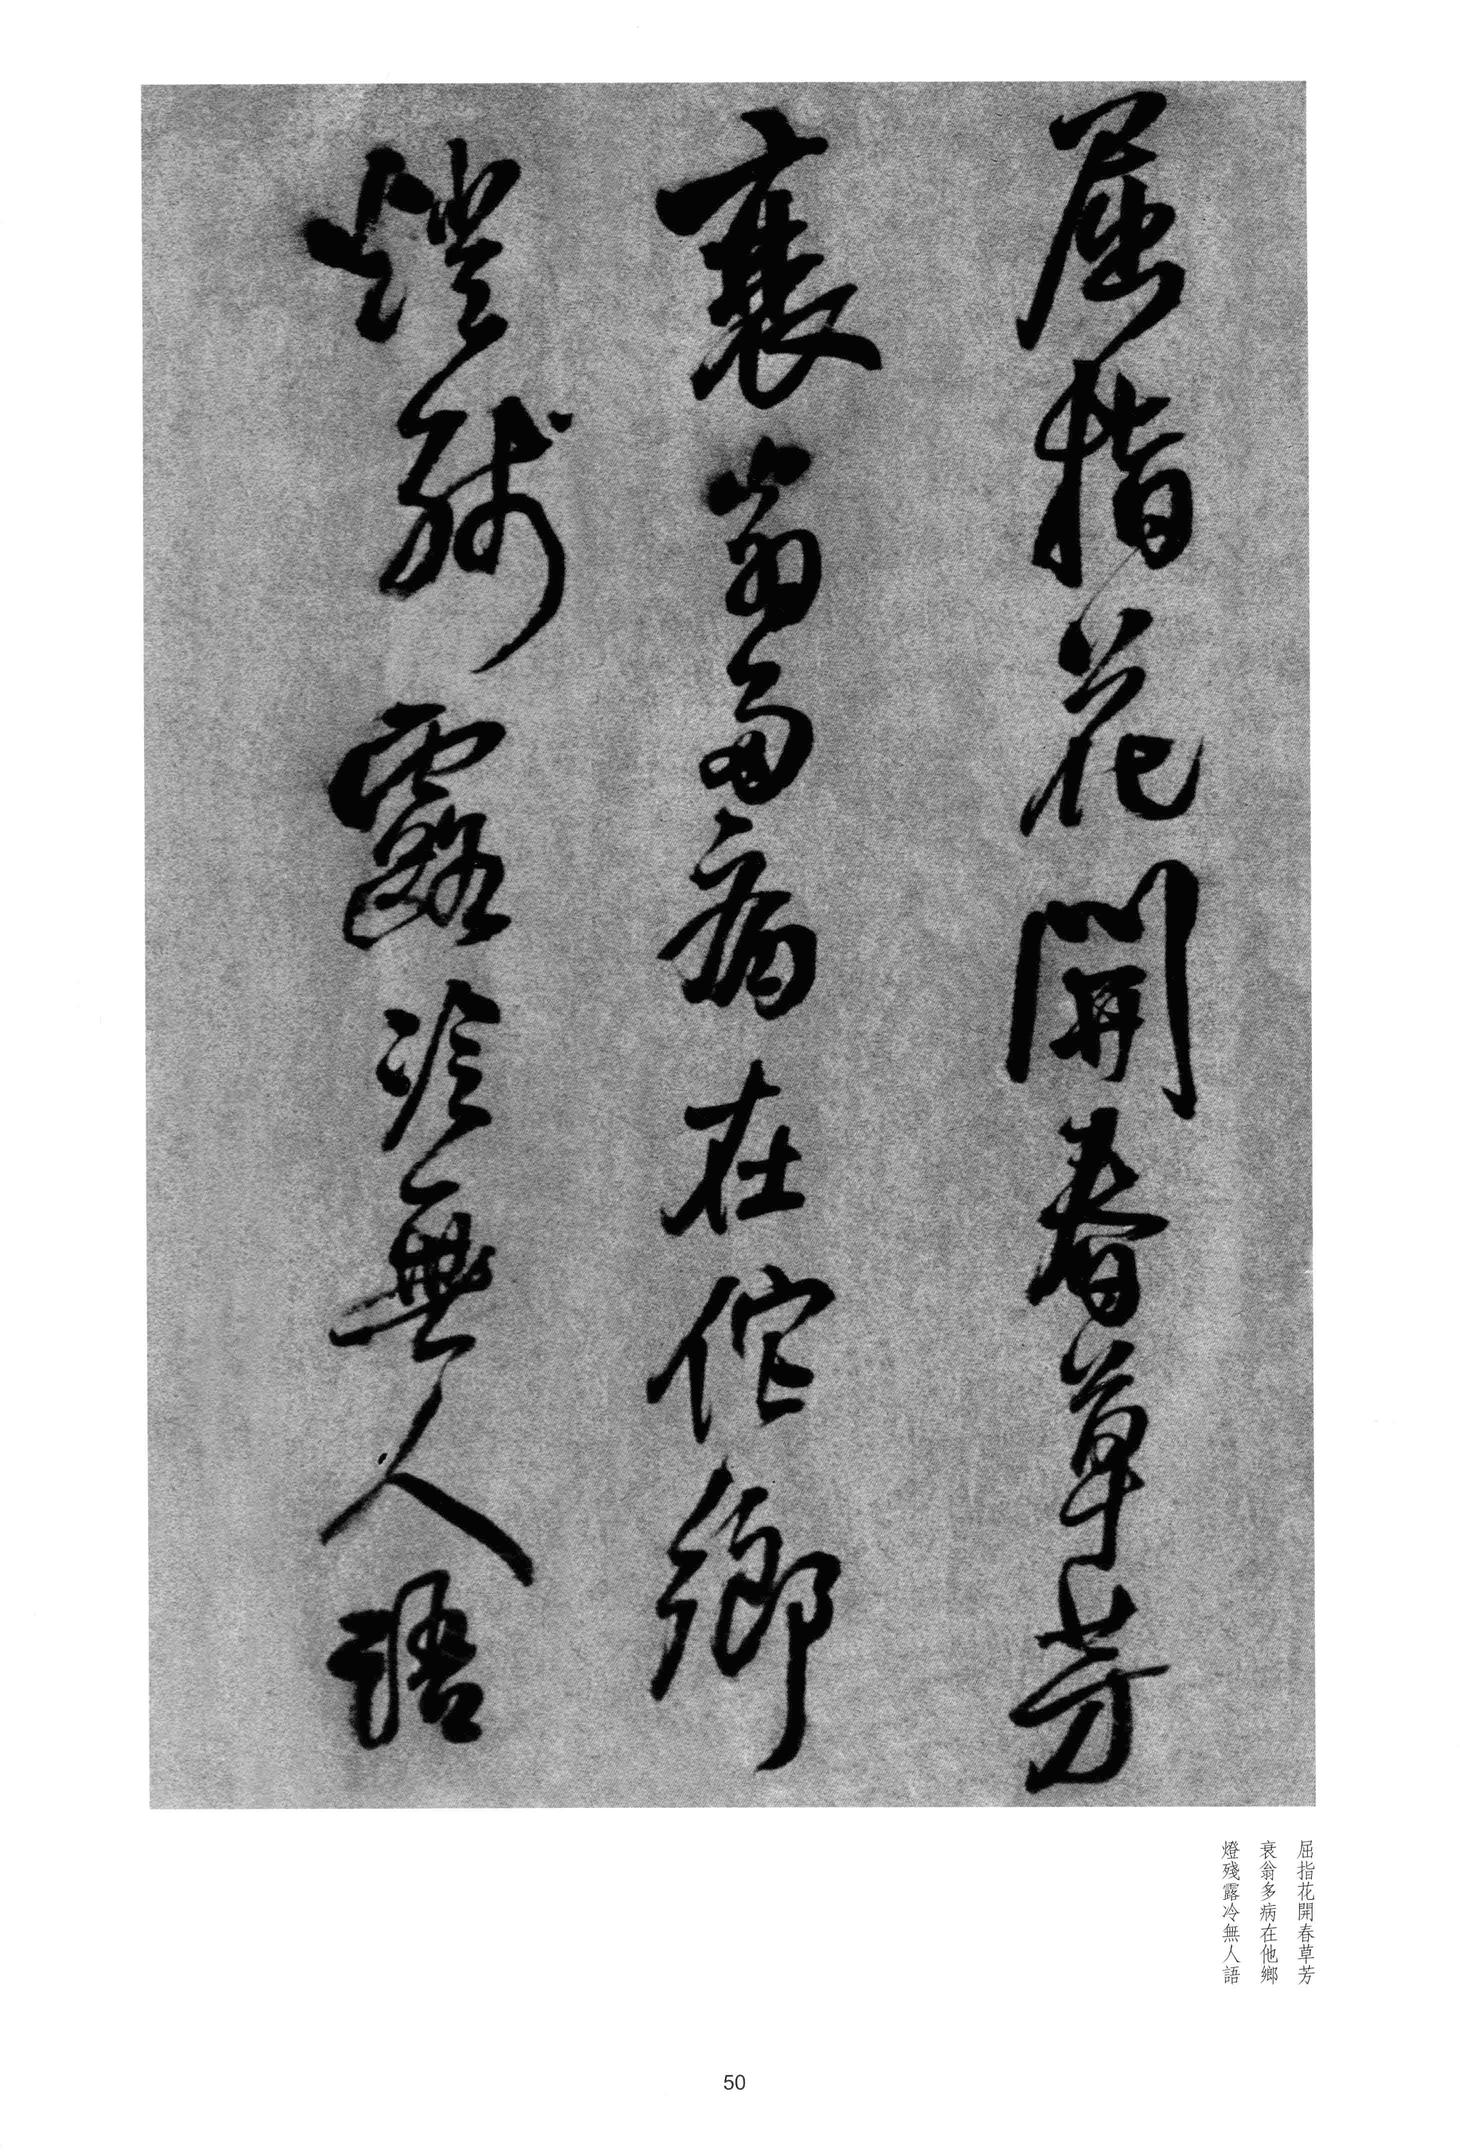 屈指花開春草芳
衰翁多病在佗鄉
燈殘露冷無人語
屈指花開春草芳
衰翁多病在他鄉
燈殘露冷無人語
50